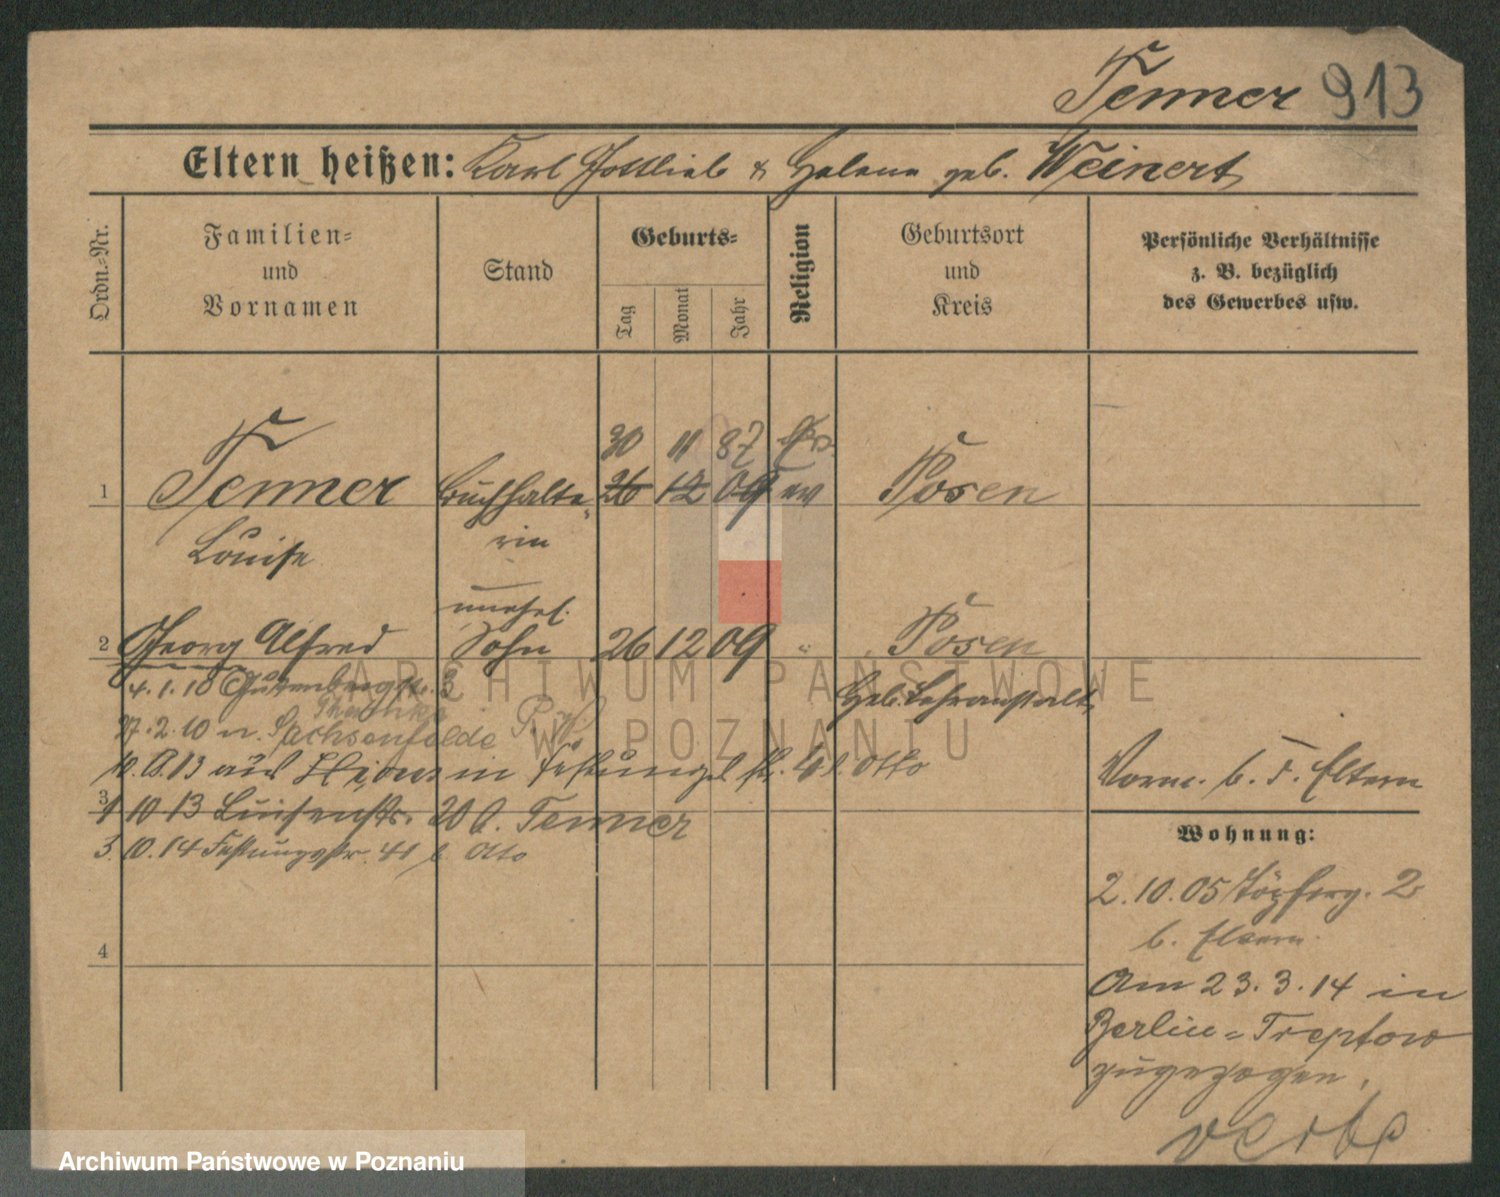 Tenner 913
Eltern heißen: Karl Gottlieb & Helene geb. Weinert
Ordn.-Nr.
Familien-
und
Vornamen
Stand
Geburts-
Tag
Monat
Jahr
Religion
Geburtsort
und
Kreis
Persönliche Verhältnisse
z. B. bezüglich
des Gewerbes usw.
30 11 87
1 Tenner Buchhalte- 26 12 09 ev Posen
Louise rin
unehel.
2 Georg Alfred Sohn 26 12 09 " Posen
4.1.10 Gutenbergstr. 3 Geb. Lehranstalt
27.2.10 n. Sachsenfelde
10.13 aus in 41 b. Otto Vorm. b. d. Eltern
3
1 10 13 Luisenstr. 20 b. Tenner
Wohnung:
3. 10. 14 Festungsstr. 41 b. Otto
2.10.05 Töpferg. 2
b. Eltern
4
Am 23.3.14 in
Berlin-Treptow
zugezogen.
ARCHIWUM PAŃSTWOWE
W POZNANIU
Archiwum Państwowe w Poznaniu